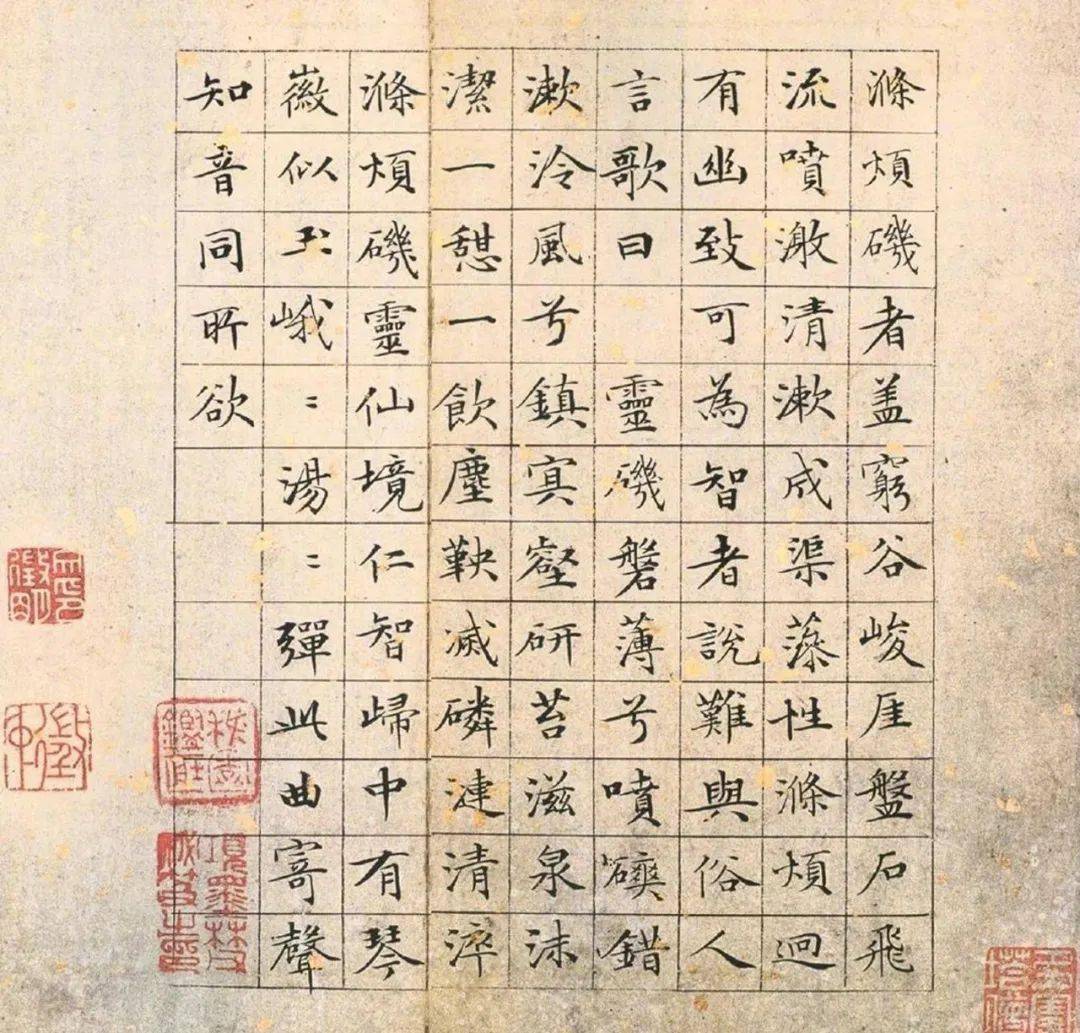 滌煩磯者盖窮谷峻厓盤石飛
流噴激清漱成渠藻性滌煩迥
有幽致可為智者說難與俗人
言歌曰 靈磯磐薄兮噴錯
漱泠風兮鎮冥壑研苔滋泉沫
潔一憇一飲塵鞅滅磷漣清淬
滌煩磯靈仙境仁智歸中有琴
徽似玉峨〻湯〻彈此曲寄聲
知音同所欲
項墨林父
秘笈之印